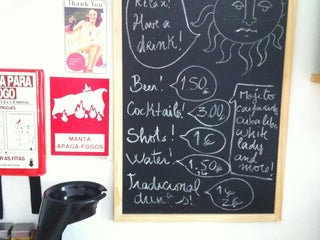 Relax!
Have a
drink!
Thank You
Beer! 1.50€
Cocktails! 3.00€
Shots! 1€
Water! 1.50€
Tradicional
drinks! 1€
2€
Mojito
caipirinha
cuba libre
white
lady
and
more!
PARA
FOGO
MANTA
APAGA-FOGOS
AR AS FITAS